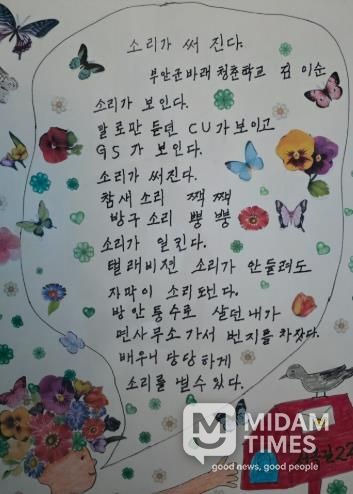 소리가 써 진다.
부안군바래 청춘학교 김 이순
소리가 보인다.
말로만 듣던 CU가 보이고
GS 가 보인다.
소리가 써진다.
참새 소리 짹 짹
방구 소리 뿡 뿡
소리가 읽킨다.
텔래비젼 소리가 안들려도
자막이 소리됀다.
방안통수로 살던 내가
면사무소 가서 번지를 차잤다.
배우니 당당하게
소리를 낼수 있다.
MIDAM
TIMES
good news, good people